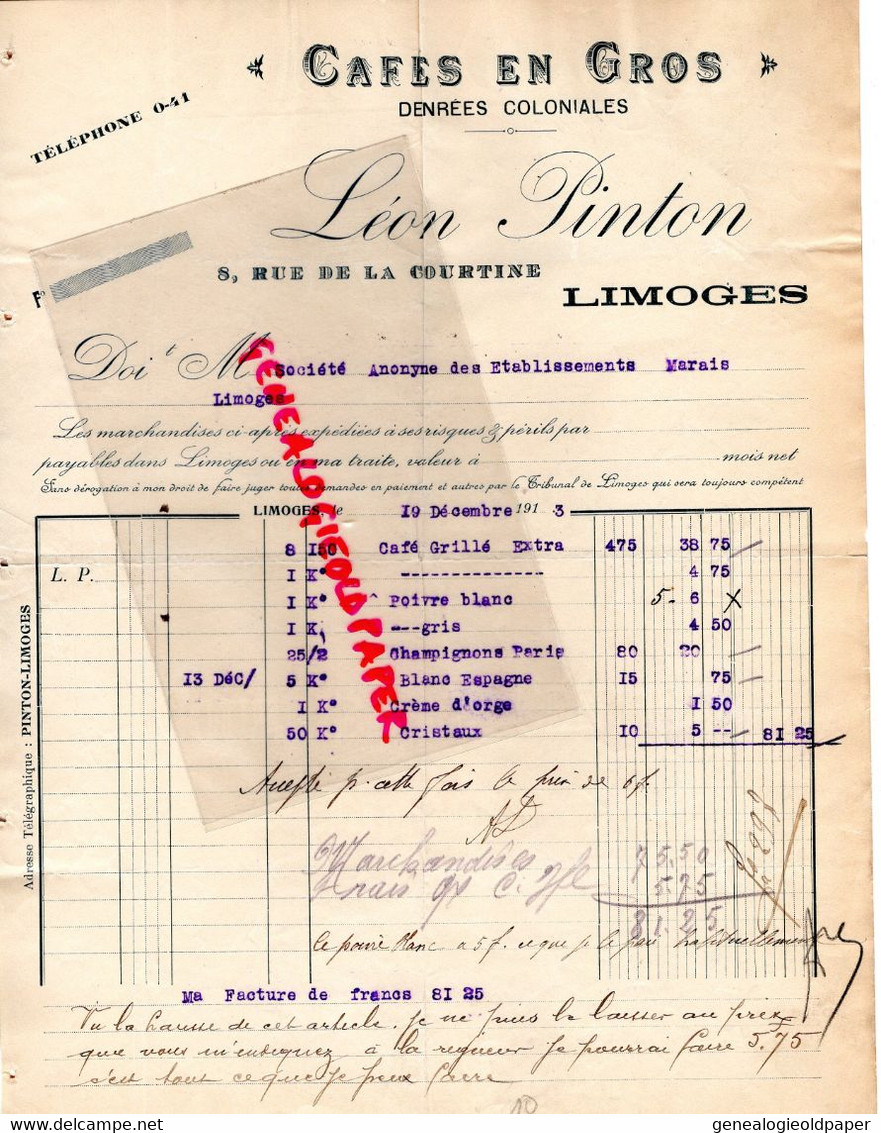 CAFES EN GROS
DENRÉES COLONIALES
TÉLÉPHONE 0-41
Léon Pinton
8, RUE DE LA COURTINE
LIMOGES
Fo
Doit M Société Anonyne des Etablissements Marais
Limoges
Les marchandises ci-après expédiées à ses risques & périls par
payables dans Limoges ou en ma traite, valeur à mois net
Sans dérogation à mon droit de faire juger toutes demandes en paiement et autres par le Tribunal de Limoges qui sera toujours compétent
LIMOGES, le I9 Décembre 191 3
8 I50 Café Grillé Extra 475 38 75
L. P. I K° -------------- 4 75
I K° Poivre blanc 5- 6 X
I K, ---gris 4 50
25/2 Champignons Paris 80 20
I3 DéC/ 5 K° Blanc Espagne I5 75
I K° Crème d'orge I 50
50 K° Cristaux I0 5 -- 8I 25
Accepté p. cette fois le prix de 6 f.
AL
Marchandises 75.50
Frais gx C. 5.75
81.25
le poivre blanc a 5 f. ce que je le paie habituellement
Ma Facture de francs 8I 25
Vu la hausse de cet article, je ne puis le laisser au prix
que vous m'indiquez, à la rigueur je pourrai faire 5.75
c'est tout ce que je peux faire
10
Adresse Télégraphique : PINTON-LIMOGES
GENEALOGIEOLDPAPER
genealogieoldpaper